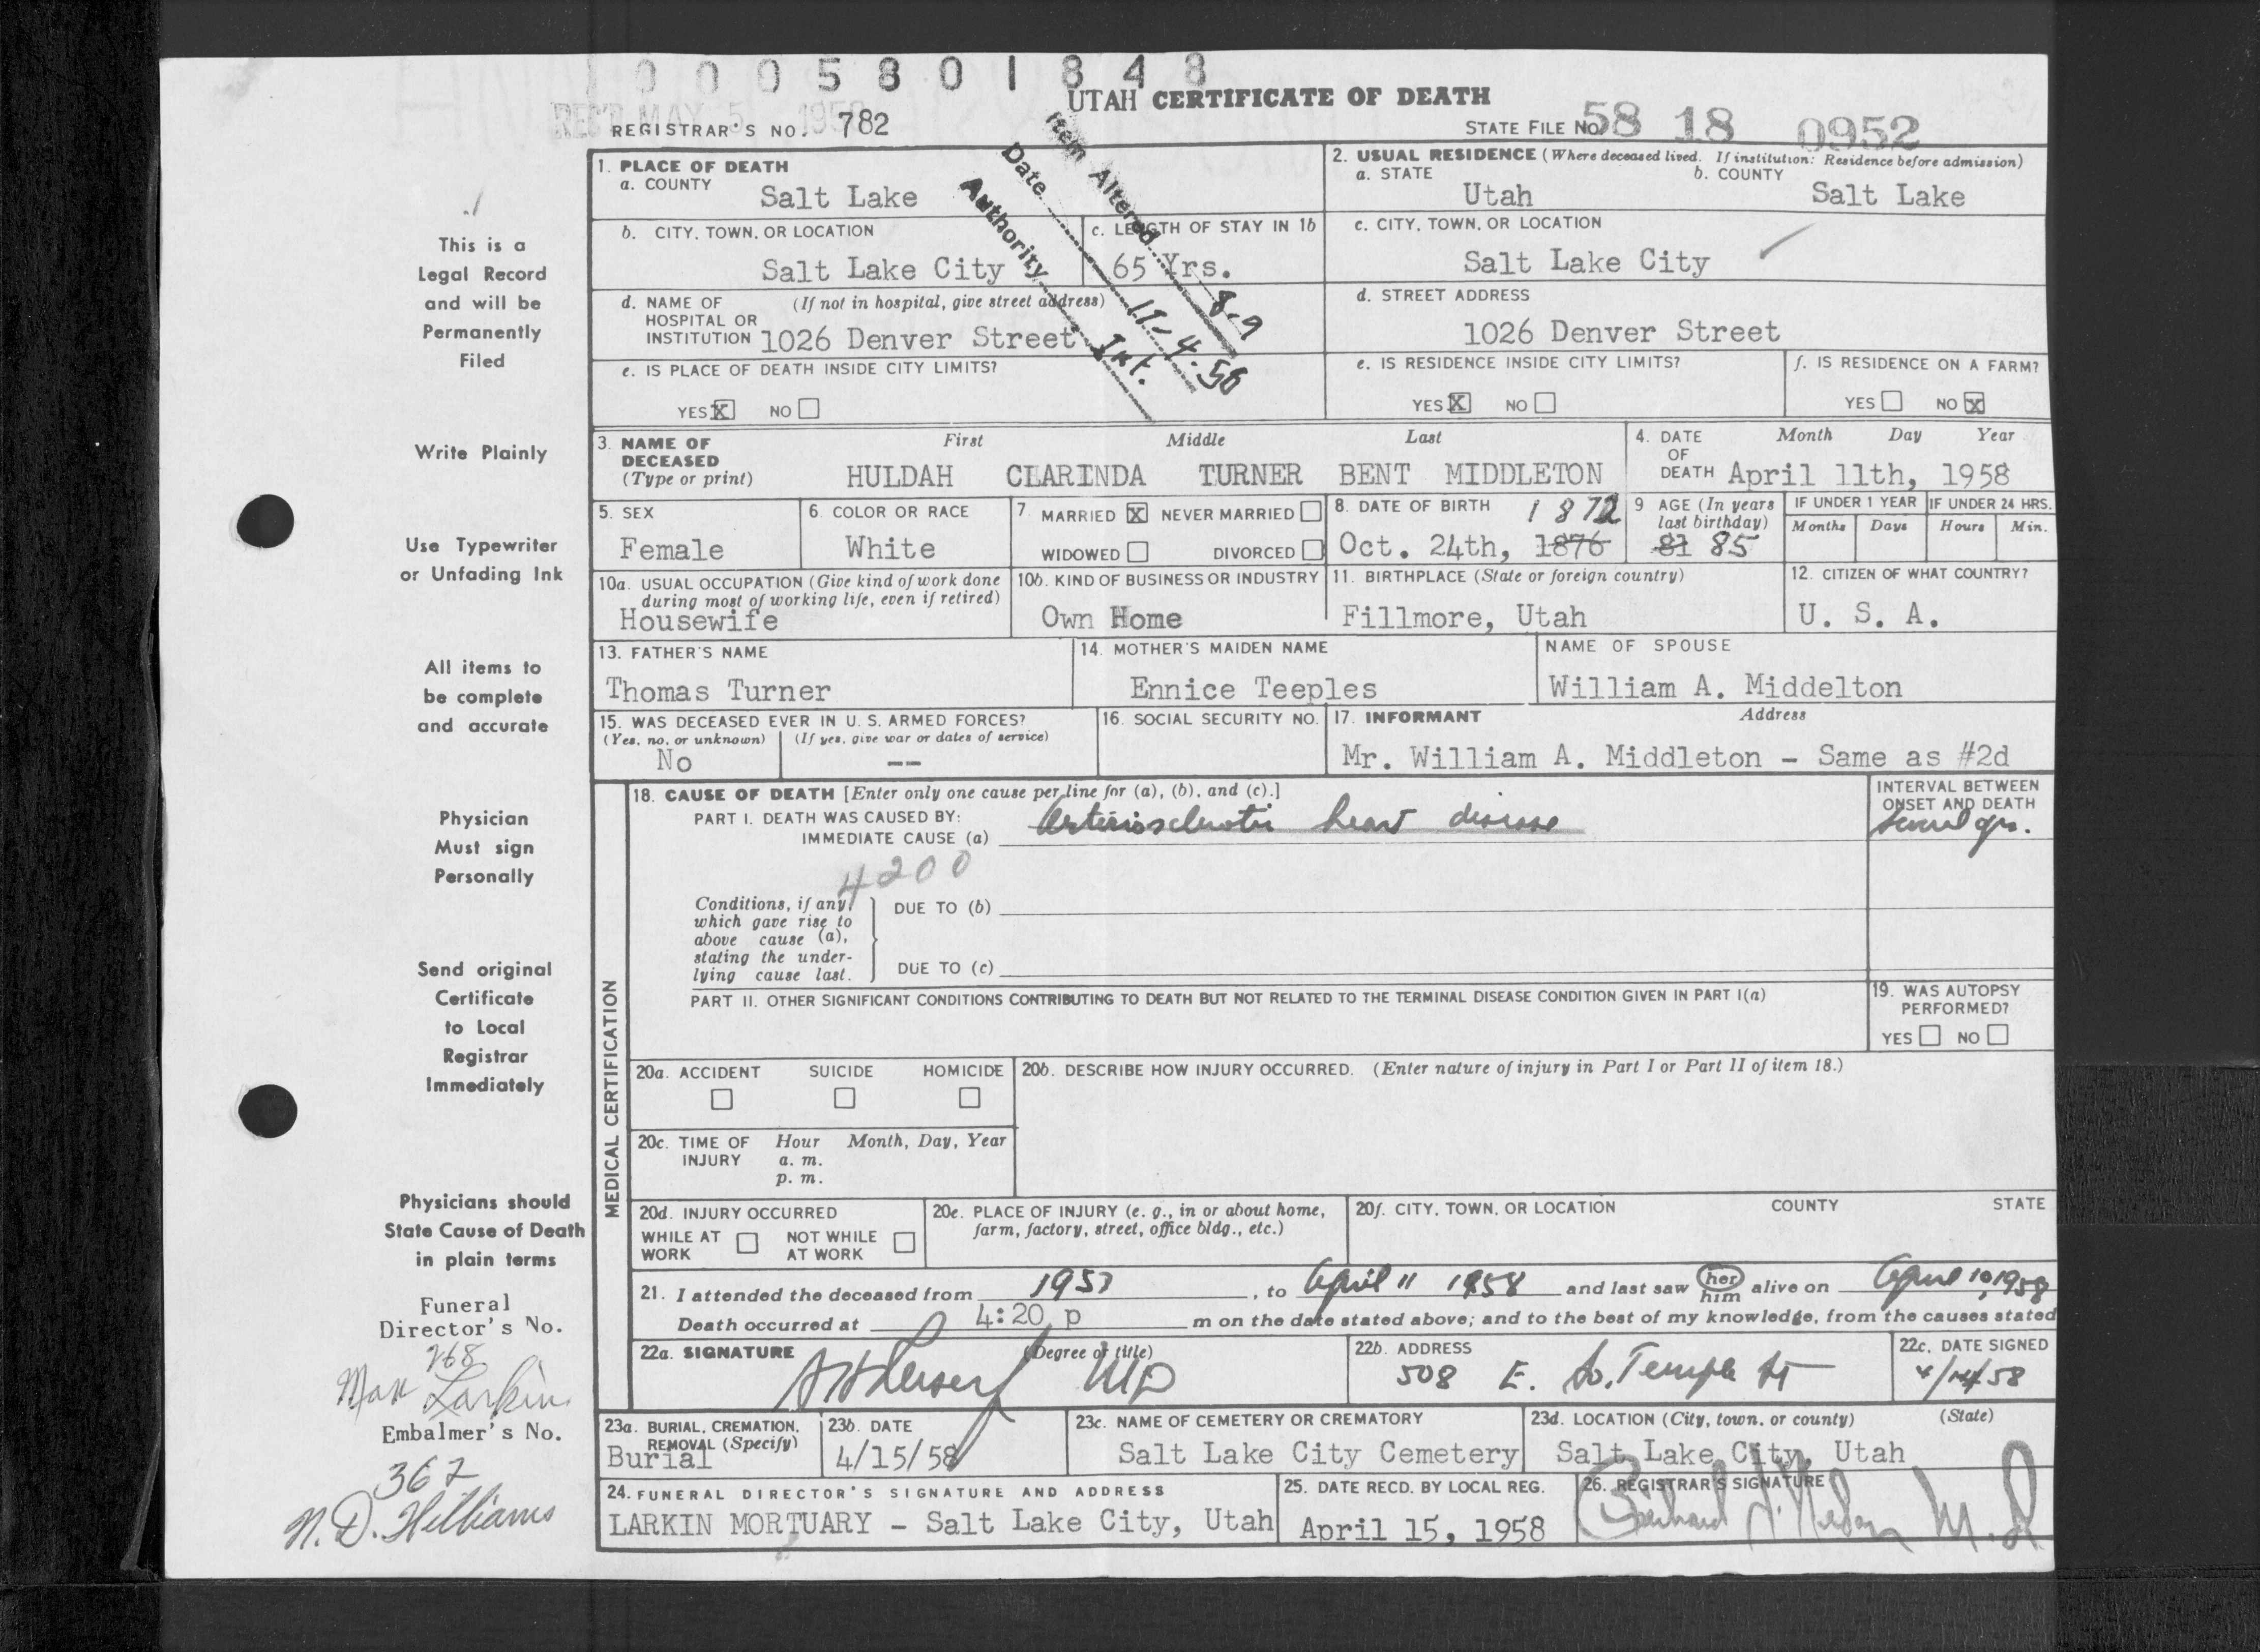 0 0 0 5 8 0 1 8 4 8
REC'D MAY 5 1958
UTAH CERTIFICATE OF DEATH
REGISTRAR'S NO. 782
STATE FILE NO. 58 18 0952
Item Altered 8-9
Date 11-4-58
Authority Int.
1. PLACE OF DEATH
a. COUNTY
Salt Lake
2. USUAL RESIDENCE (Where deceased lived. If institution: Residence before admission)
a. STATE
Utah
b. COUNTY
Salt Lake
b. CITY, TOWN, OR LOCATION
Salt Lake City
c. LENGTH OF STAY IN 1b
65 Yrs.
c. CITY, TOWN, OR LOCATION
Salt Lake City
d. NAME OF HOSPITAL OR INSTITUTION (If not in hospital, give street address)
1026 Denver Street
d. STREET ADDRESS
1026 Denver Street
e. IS PLACE OF DEATH INSIDE CITY LIMITS?
YES X NO
e. IS RESIDENCE INSIDE CITY LIMITS?
YES X NO
f. IS RESIDENCE ON A FARM?
YES NO X
3. NAME OF DECEASED (Type or print)
First Middle Last
HULDAH CLARINDA TURNER BENT MIDDLETON
4. DATE OF DEATH
Month Day Year
April 11th, 1958
5. SEX
Female
6. COLOR OR RACE
White
7. MARRIED X NEVER MARRIED
WIDOWED DIVORCED
8. DATE OF BIRTH 1872
Oct. 24th, 1876
9 AGE (In years last birthday)
81 85
IF UNDER 1 YEAR
Months Days
IF UNDER 24 HRS.
Hours Min.
10a. USUAL OCCUPATION (Give kind of work done during most of working life, even if retired)
Housewife
10b. KIND OF BUSINESS OR INDUSTRY
Own Home
11. BIRTHPLACE (State or foreign country)
Fillmore, Utah
12. CITIZEN OF WHAT COUNTRY?
U. S. A.
13. FATHER'S NAME
Thomas Turner
14. MOTHER'S MAIDEN NAME
Ennice Teeples
NAME OF SPOUSE
William A. Middelton
15. WAS DECEASED EVER IN U. S. ARMED FORCES?
(Yes, no, or unknown) (If yes, give war or dates of service)
No --
16. SOCIAL SECURITY NO.
17. INFORMANT Address
Mr. William A. Middleton - Same as #2d
MEDICAL CERTIFICATION
18. CAUSE OF DEATH [Enter only one cause per line for (a), (b), and (c).]
PART I. DEATH WAS CAUSED BY:
IMMEDIATE CAUSE (a) Arteriosclerotic heart disease
INTERVAL BETWEEN ONSET AND DEATH
several yrs.
4200
Conditions, if any, which gave rise to above cause (a), stating the underlying cause last.
DUE TO (b)
DUE TO (c)
PART II. OTHER SIGNIFICANT CONDITIONS CONTRIBUTING TO DEATH BUT NOT RELATED TO THE TERMINAL DISEASE CONDITION GIVEN IN PART I(a)
19. WAS AUTOPSY PERFORMED?
YES NO
20a. ACCIDENT SUICIDE HOMICIDE
20b. DESCRIBE HOW INJURY OCCURRED. (Enter nature of injury in Part I or Part II of item 18.)
20c. TIME OF INJURY Hour Month, Day, Year
a. m.
p. m.
20d. INJURY OCCURRED
WHILE AT WORK NOT WHILE AT WORK
20e. PLACE OF INJURY (e. g., in or about home, farm, factory, street, office bldg., etc.)
20f. CITY, TOWN, OR LOCATION COUNTY STATE
21. I attended the deceased from 1953, to April 11 1958 and last saw her him alive on April 10, 1958
Death occurred at 4:20 p m on the date stated above; and to the best of my knowledge, from the causes stated
22a. SIGNATURE (Degree or title)
MD
22b. ADDRESS
508 E. So. Temple St
22c. DATE SIGNED
4/14/58
23a. BURIAL, CREMATION, REMOVAL (Specify)
Burial
23b. DATE
4/15/58
23c. NAME OF CEMETERY OR CREMATORY
Salt Lake City Cemetery
23d. LOCATION (City, town, or county) (State)
Salt Lake City, Utah
24. FUNERAL DIRECTOR'S SIGNATURE AND ADDRESS
LARKIN MORTUARY - Salt Lake City, Utah
25. DATE RECD. BY LOCAL REG.
April 15, 1958
26. REGISTRAR'S SIGNATURE
M.D.
This is a
Legal Record
and will be
Permanently
Filed
Write Plainly
Use Typewriter
or Unfading Ink
All items to
be complete
and accurate
Physician
Must sign
Personally
Send original
Certificate
to Local
Registrar
Immediately
Physicians should
State Cause of Death
in plain terms
Funeral
Director's No.
268
Max Larkin
Embalmer's No.
367
N. D. Williams